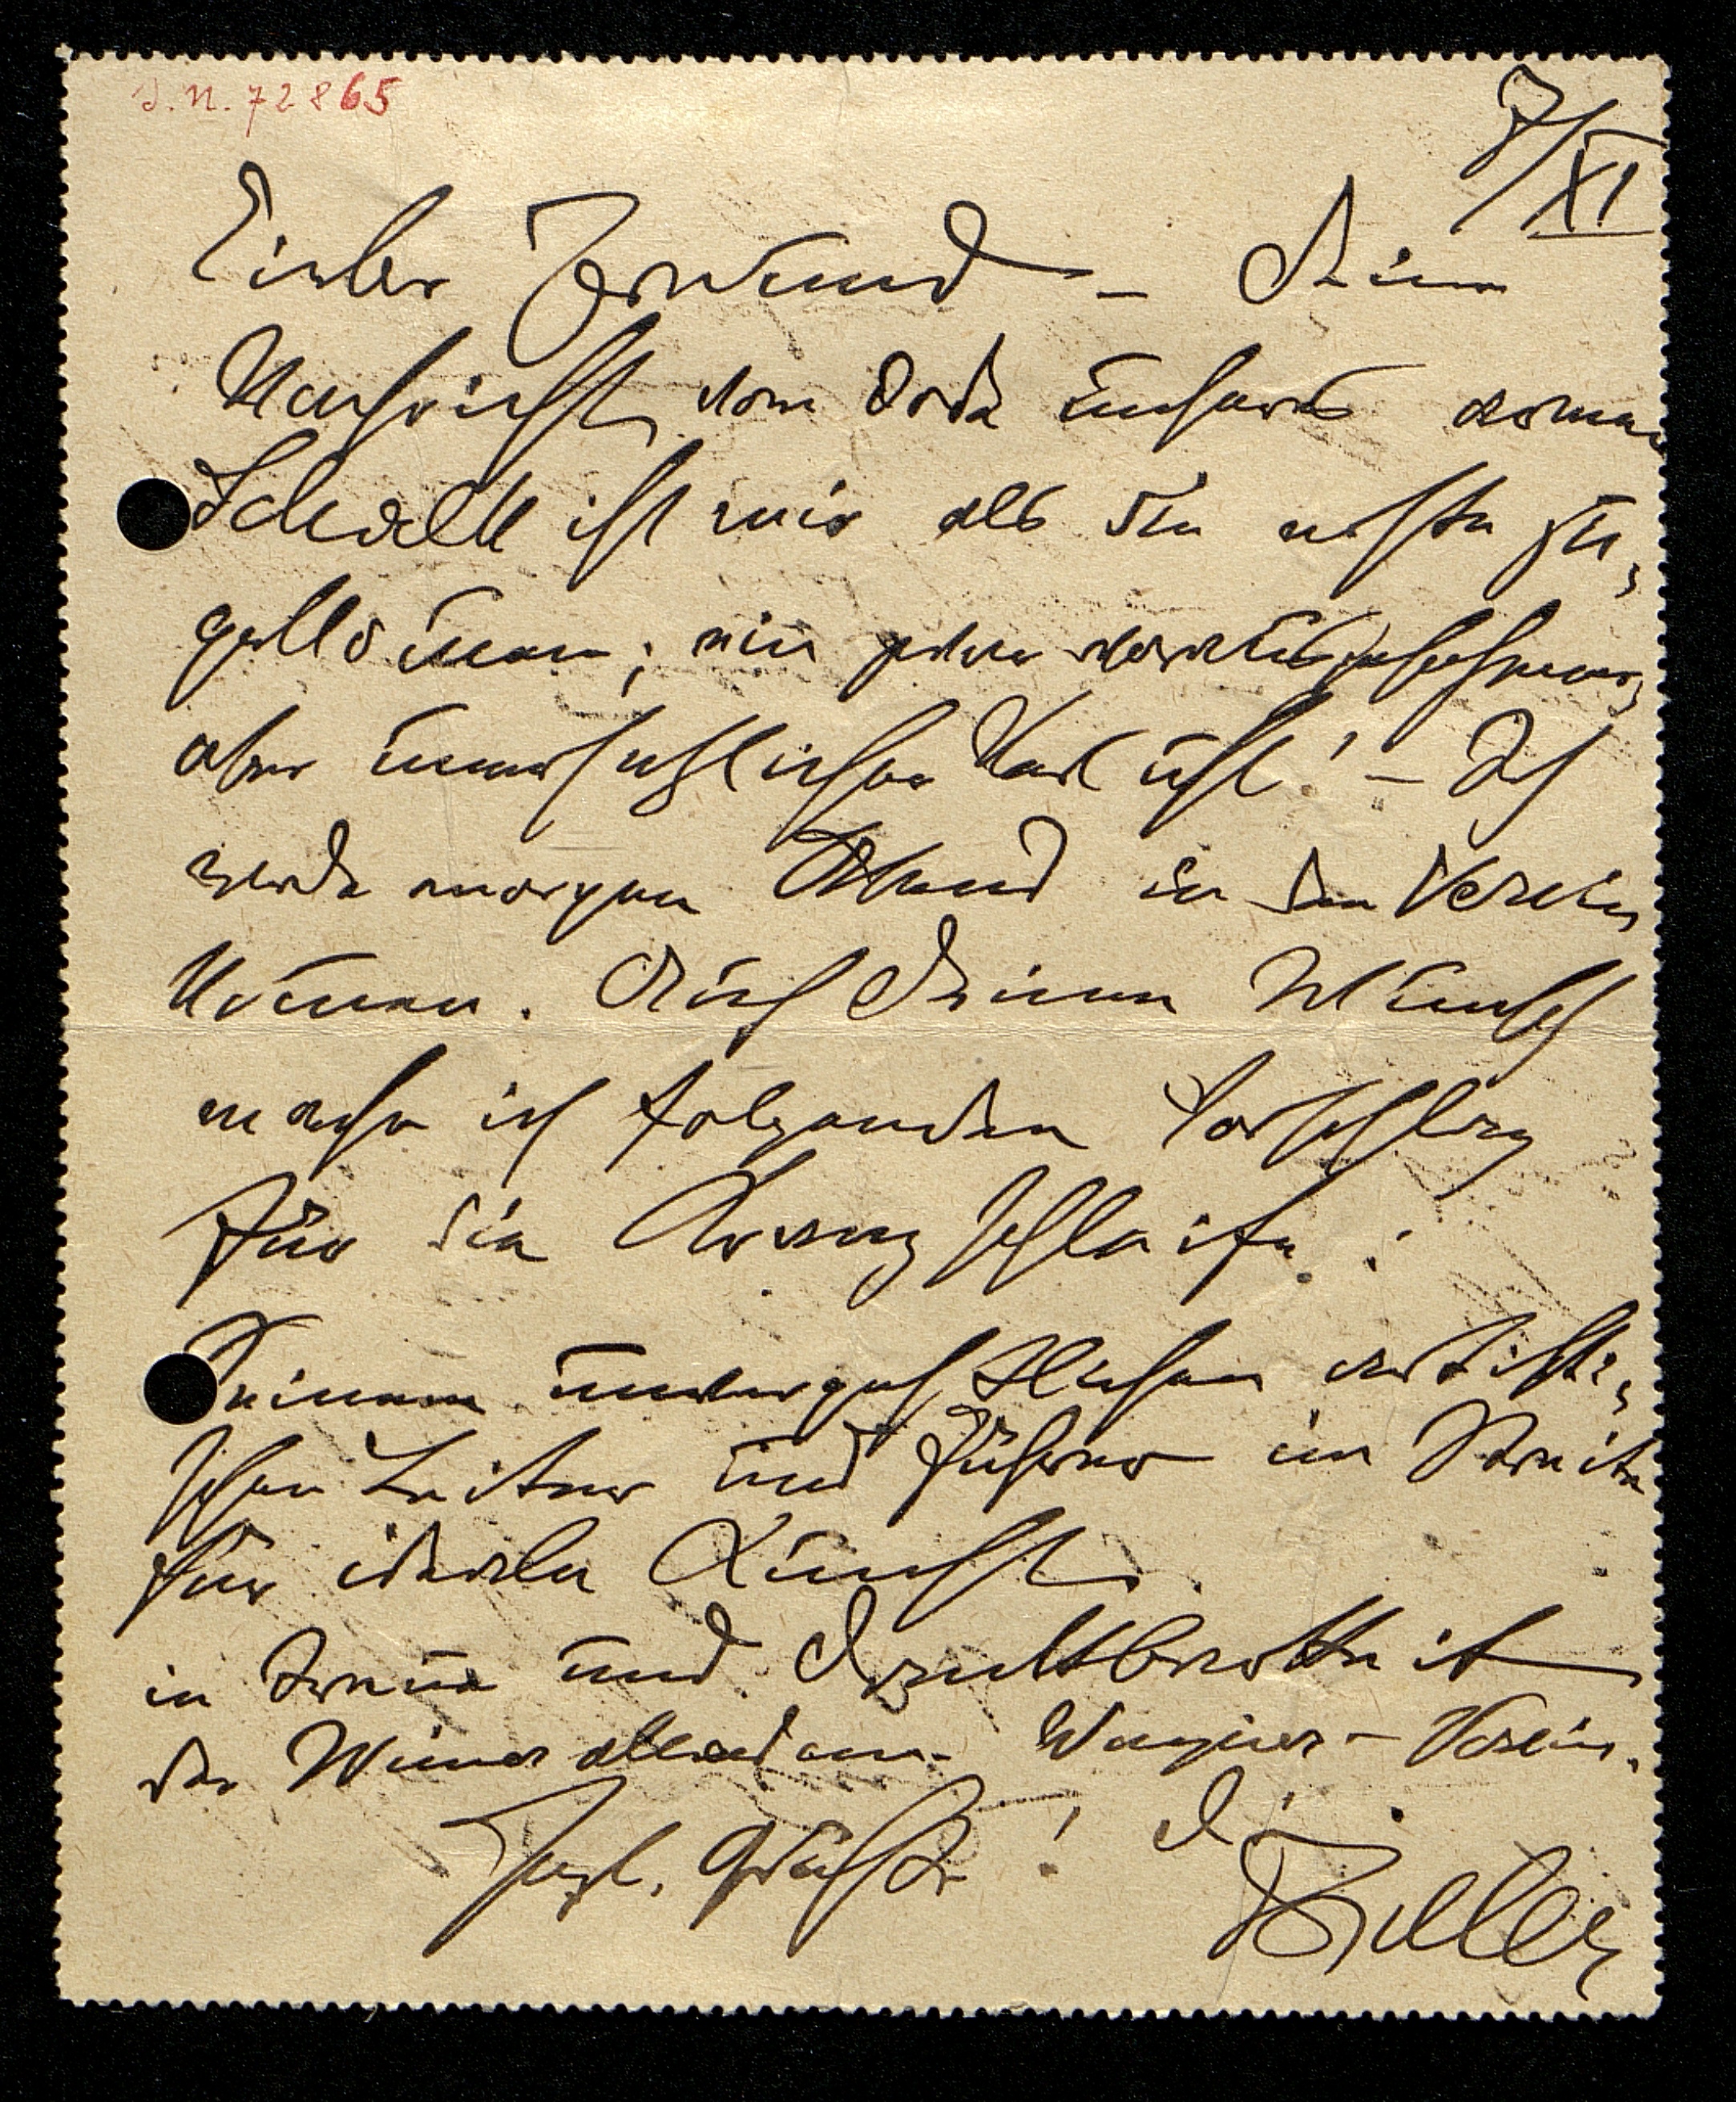 I.N. 72865
7/XI
Lieber Freund – Deine
Nachricht vom Tode unseres armen
Schalk ist mir als die erste zu-
gekommen; ein zwar vorauszusehender,
aber unersetzlicher Verlust! – Ich
werde morgen Abend in den Verein
kommen. Auf Deinen Wunsch
mache ich folgenden Vorschlag
für die Kranzschleife:
Seinem unvergeßlichen artisti-
schen Leiter und Führer im Streite
für ideale Kunst
in Treue und Dankbarkeit
der Wiener akadem. Wagner-Verein.
Herzl. Grüße! D.